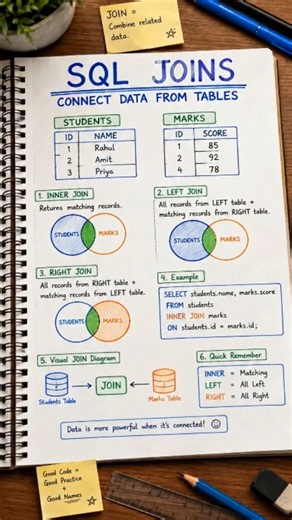 JOIN =
Combine related
data.
SQL JOINS
CONNECT DATA FROM TABLES
STUDENTS
ID NAME
1 Rahul
2 Amit
3 Priya
MARKS
ID SCORE
1 85
2 92
4 78
1. INNER JOIN
Returns matching records.
STUDENTS MARKS
2. LEFT JOIN
All records from LEFT table +
matching records from RIGHT table.
STUDENTS MARKS
3. RIGHT JOIN
All records from RIGHT table +
matching records from LEFT table.
STUDENTS MARKS
4. Example
SELECT students.name, marks.score
FROM students
INNER JOIN marks
ON students.id = marks.id;
5. Visual JOIN Diagram
JOIN
Students Table
Marks Table
6. Quick Remember
INNER = Matching
LEFT = All Left
RIGHT = All Right
Data is more powerful when it's connected!
Good Code =
Good Practice
+
Good Names